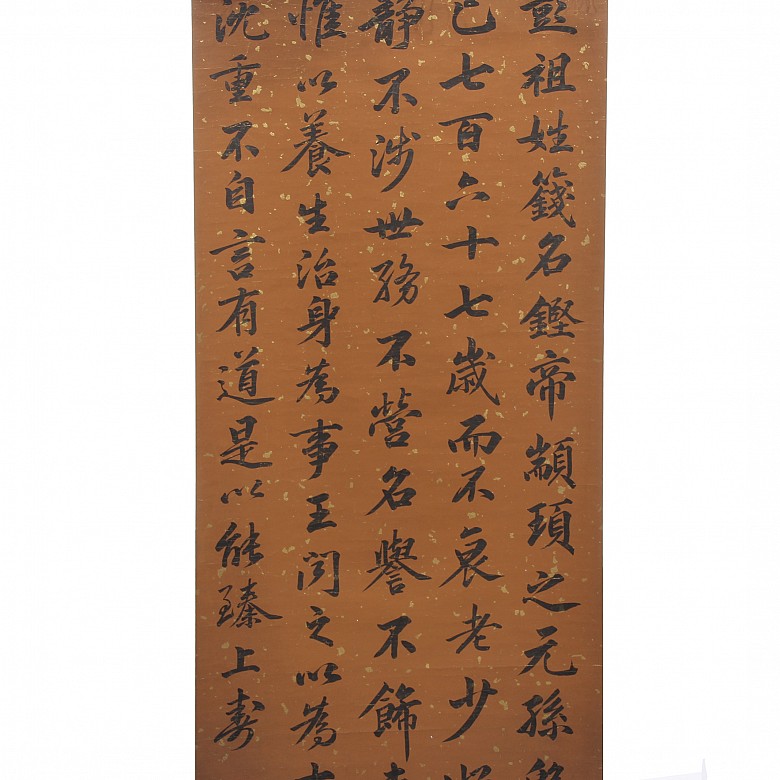 彭祖姓籛名鏗帝顓頊之元孫
已七百六十七歲而不衰老少
靜不涉世務不營名譽不飾
惟以養生治身為事王聞之以為
沈重不自言有道是以能臻上壽